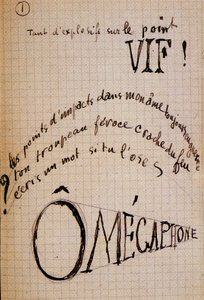 1
Tant d'explosifs sur le point
VIF !
les points d'impacts dans mon âme toujours en guerre
ton troupeau féroce crache du feu
écris un mot si tu l'oses
?
Ô MÉCAPHONE